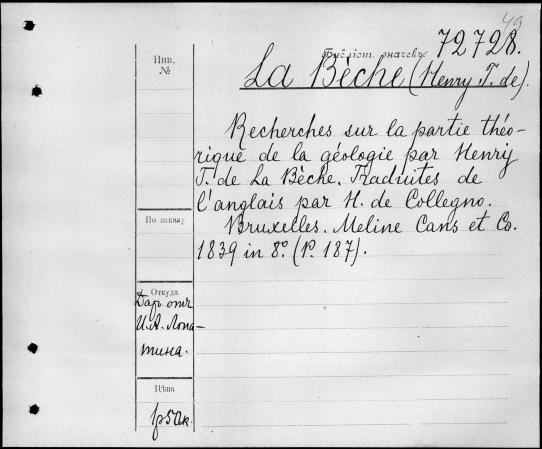 49
72728.
Инв.
№
La Bèche (Henry T. de).
Recherches sur la partie théo-
rique de la géologie par Henry
T. de La Bèche. Traduites de
l'anglais par H. de Collegno.
Bruxelles. Meline Cans et Co.
1839 in 8º. (P. 187).
По заказу
Откуда
Дар отъ
И. А. Лопа-
тина.
Цѣна
1р50к.